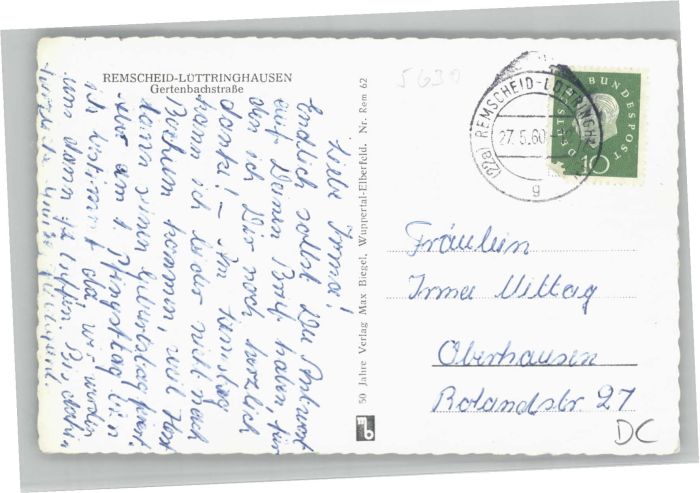 REMSCHEID-LÜTTRINGHAUSEN
Gertenbachstraße
5630
(22a) REMSCHEID-LÜTTRINGH
27.5.60
g
DEUTSCHE BUNDESPOST
10
Liebe Irma!
Endlich sollst Du Antwort
auf Deinen Brief haben, für
den ich Dir noch herzlich
danke! – Am Samstag
kann ich leider nicht nach
Bochum kommen, weil Horst
dann seinen Geburtstag feiert.
Aber am 1. Pfingsttag bin
ich bestimmt da, wir werden
uns dann ja treffen. Bis dahin
50 Jahre Verlag Max Biegel, Wuppertal-Elberfeld. Nr. Rem 62
mb
Fräulein
Irma Mittag
Oberhausen
Rolandstr. 27
DC